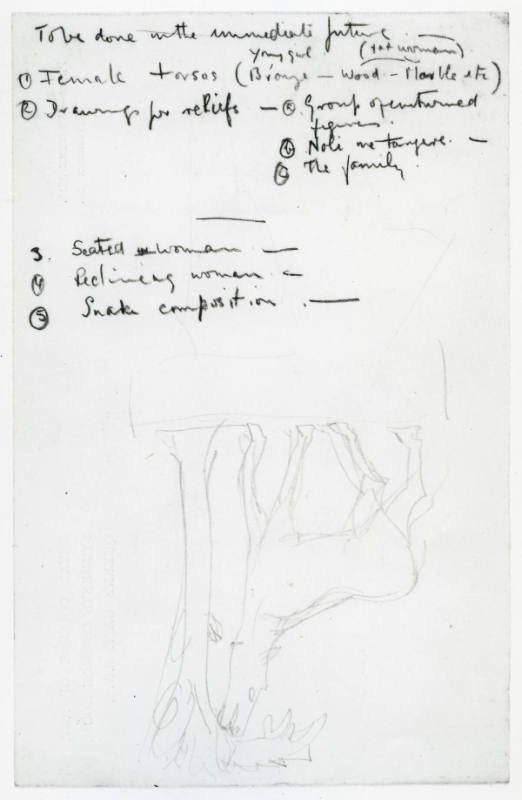 To be done in the immediate future.
young girl (fat woman)
① Female torsos (Bronze — Wood — Marble etc)
② Drawings for reliefs — ⓐ Group of
figures.
ⓑ Noli me tangere. —
ⓒ The family.
3. Seated woman —
④ Reclining woman —
⑤ Snake composition . —